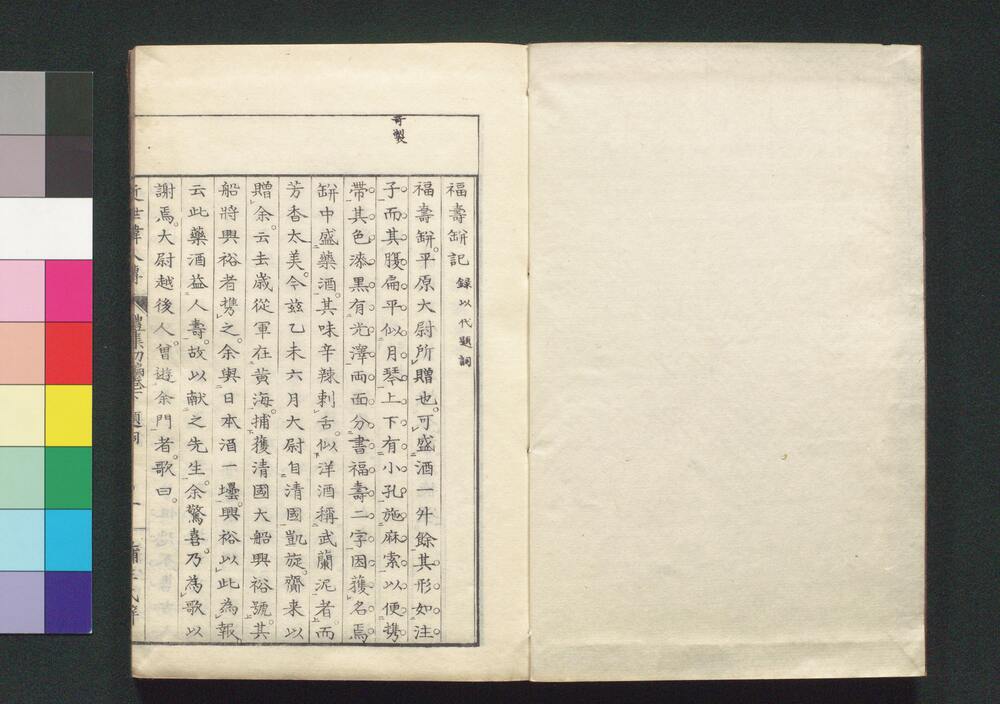 奇製
福壽缾記 録以代題詞
福壽缾。平原大尉所贈也。可盛酒一升餘。其形如注
子。而其腹扁平似月琴。上下有小孔。施麻索以便携
帶。其色漆黑有光澤。両面分書福壽二字。因獲名焉
缾中盛藥酒。其味辛辣刺舌。似洋酒稱武蘭泥者。而
芳香太美。今玆乙未六月大尉自清國凱旋。齎来以
贈余。云去歳從軍在黄海。捕獲清國大船興裕號。其
船將興裕者携之。余與日本酒一壜。興裕以此為報
云此藥酒益人壽。故以献之先生。余驚喜。乃為歌以
謝焉。大尉越後人。曾遊余門者。歌曰。
近世偉人傳 禮集初編巻下 題詞